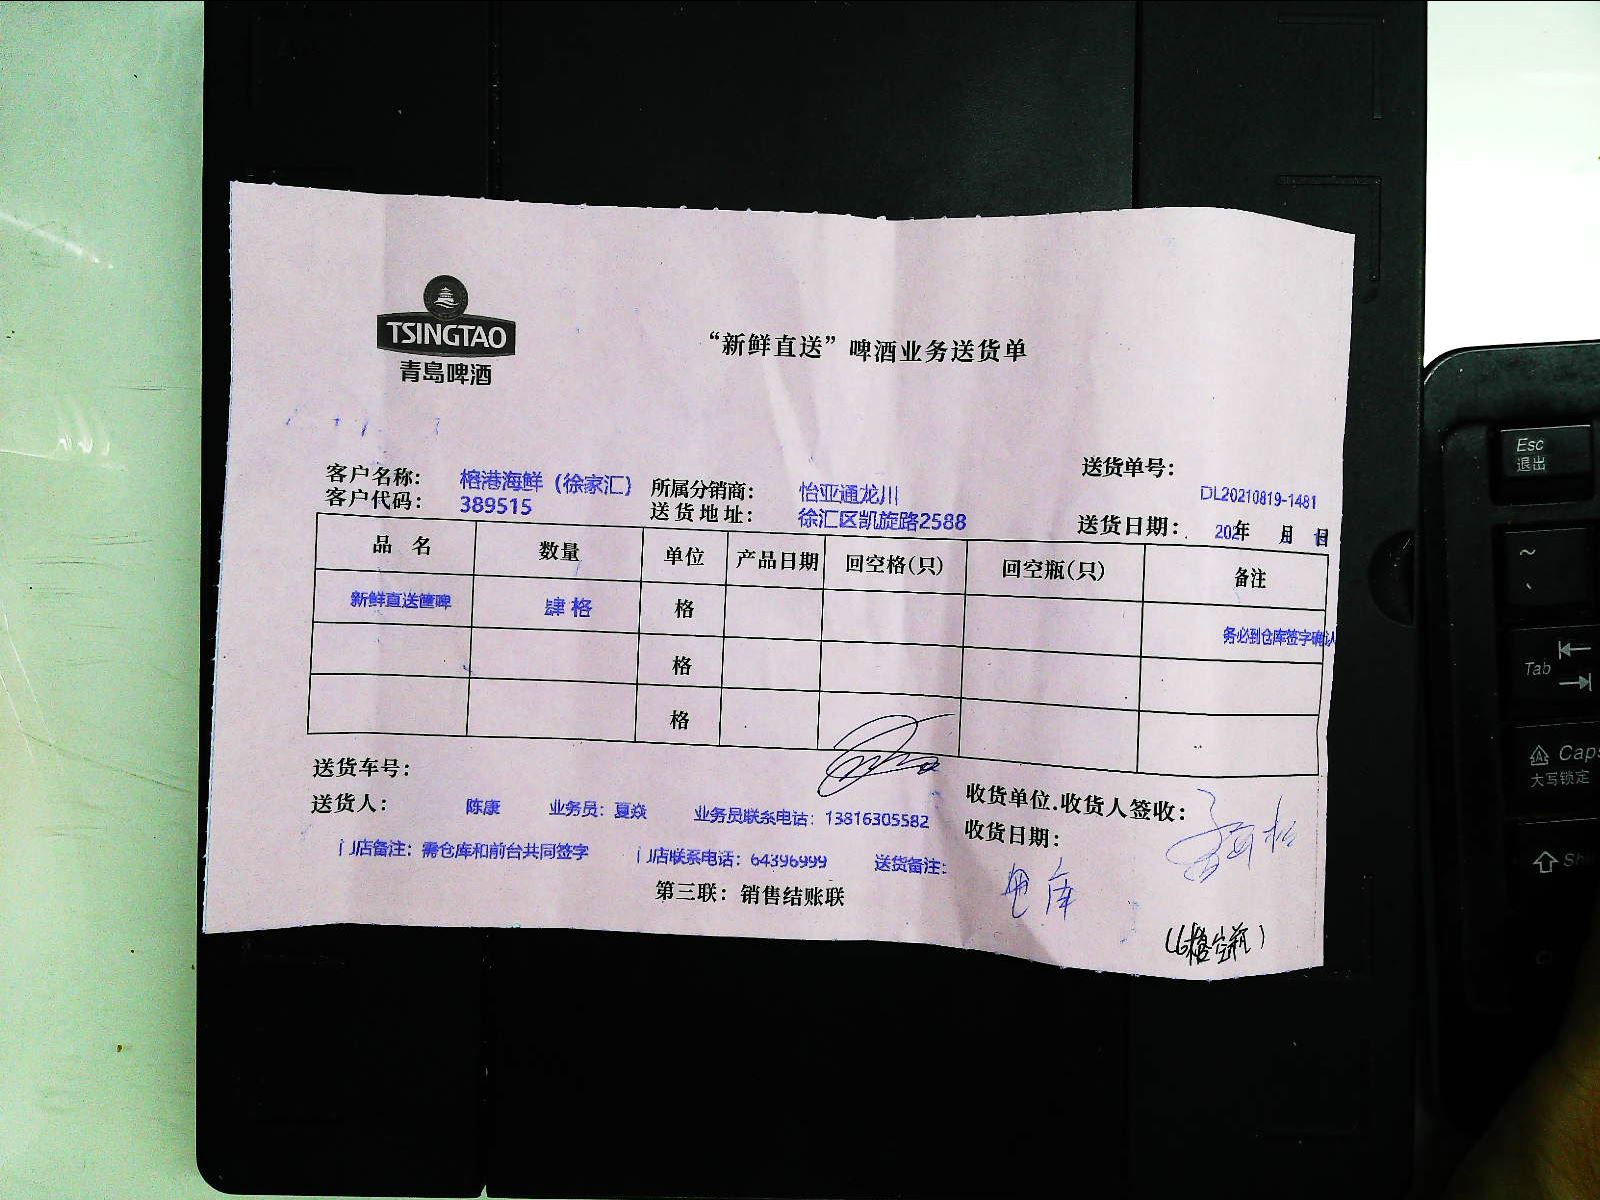 TSINGTAO
青島啤酒
“新鲜直送”啤酒业务送货单
客户名称： 榕港海鲜（徐家汇） 所属分销商： 怡亚通龙川 送货单号：
DL20210819-1481
客户代码： 389515 送货地址： 徐汇区凯旋路2588 送货日期： 202 年 月 日
品 名 数量 单位 产品日期 回空格(只) 回空瓶(只) 备注
新鲜直送筐啤 肆格 格 务必到仓库签字确认
格
格
送货车号：
收货单位.收货人签收：
送货人： 陈康 业务员：夏焱 业务员联系电话：13816305582
收货日期：
门店备注：需仓库和前台共同签字 门店联系电话：64396999 送货备注：
仓库
第三联：销售结账联
Esc
退出
~
Tab
Caps
大写锁定
Shi